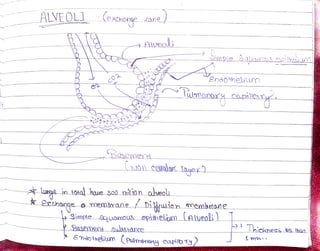 ALVEOLI (exchange zone)
Alveoli
Simple squamous epithelium
Endothelium
O2
CO2
Pulmonary capillary
Basement
(Non cellular layer)
* lungs in total have 300 million alveoli
* Exchange membrane / Diffusion membrane
→ Simple squamous epithelium (Alveoli)
→ Basement substance
→ Endothelium (Pulmonary capillary)
Thickness is less than
1 mm